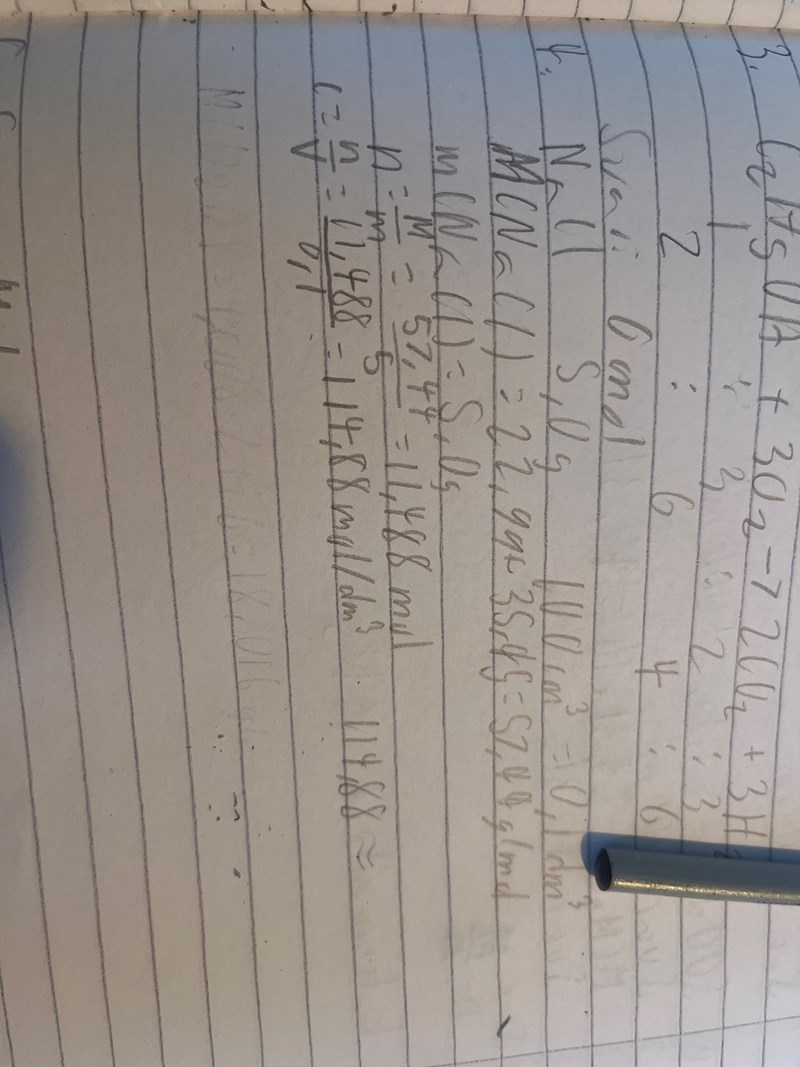 3. C2H5OH + 3O2 → 2CO2 + 3H2
1 : 3 : 2 : 3
2 : 6 4 : 6
Svar: 6 mol
4. NaCl 5,0g 100cm³ = 0,1dm³
M(NaCl) = 22,99+35,45=57,44g/mol
m(NaCl) = 5,0g
n = M/m = 57,44/5 = 11,488 mol
c = n/V = 11,488/0,1 = 114,88mol/dm³ 114,88 ≈